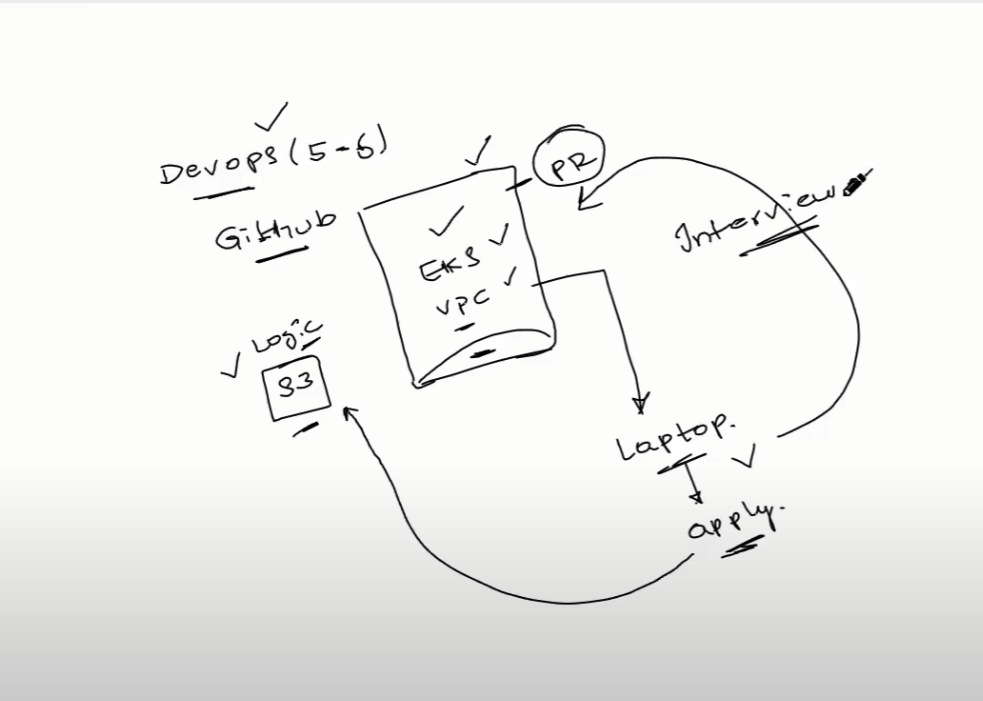 Devops (5-6)
GitHub
PR
EKS
VPC
Interview
Logic
S3
Laptop.
apply.